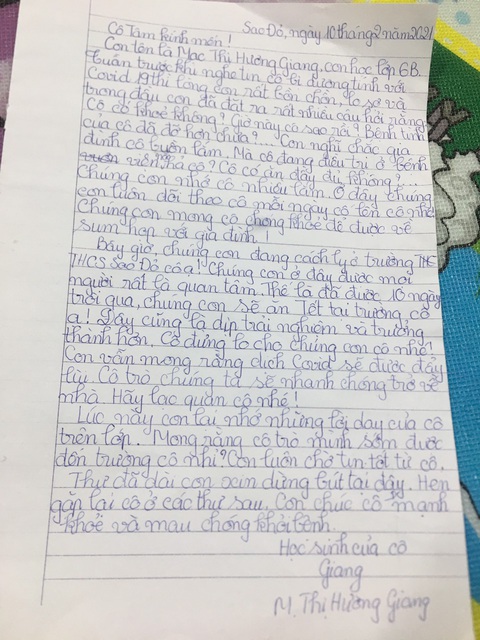 Sao Đỏ, ngày 10 tháng 2 năm 2021
Cô Tâm kính mến!
Con tên là Mạc Thị Hương Giang, con học lớp 6B.
Tuần trước khi nghe tin cô bị dương tính với
Covid 19 thì lòng con rất bồn chồn, lo sợ và
trong đầu con đã đặt ra rất nhiều câu hỏi rằng:
Cô có khoẻ không? Giờ này cô sao rồi? Bệnh tình
của cô đã đỡ hơn chưa?... Con nghĩ chắc gia
đình cô buồn lắm. Mà cô đang điều trị ở bệnh
viện hả cô? Cô có ăn đầy đủ không?...
Chúng con nhớ cô nhiều lắm. Ở đây chúng
con luôn dõi theo cô mỗi ngày cô tên cô nhé
Chúng con mong cô chóng khoẻ để được về
sum họp với gia đình!
Bây giờ, chúng con đang cách ly ở trường TH
THCS Sao Đỏ cô ạ! Chúng con ở đây được mọi
người rất là quan tâm. Thế là đã được 10 ngày
trôi qua, chúng con sẽ ăn Tết tại trường cô
ạ! Đây cũng là dịp trải nghiệm và trưởng
thành hơn. Cô đừng lo cho chúng con cô nhé!
Con vẫn mong rằng dịch Covid sẽ được đẩy
lùi. Cô trò chúng ta sẽ nhanh chóng trở về
nhà. Hãy lạc quan cô nhé!
Lúc này con lại nhớ những lời dạy của cô
trên lớp. Mong rằng cô trò mình sớm được
đến trường cô nhỉ? Con luôn chờ tin tốt từ cô.
Thư đã dài con xin dừng bút tại đây. Hẹn
gặp lại cô ở các thư sau. Con chúc cô mạnh
khoẻ và mau chóng khỏi bệnh.
Học sinh của cô
Giang
M. Thị Hương Giang